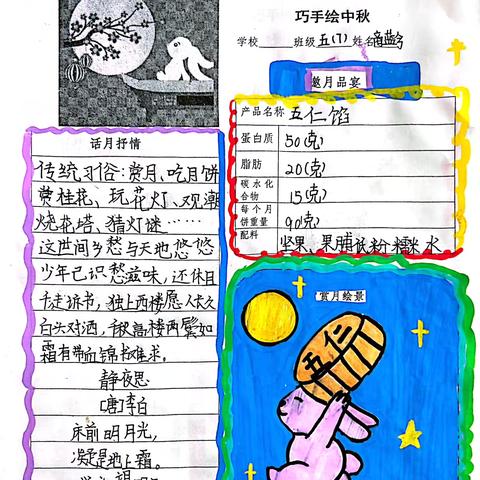 巧手绘中秋
学校 班级 五(7) 姓名
邀月品宴
产品名称 五仁馅
蛋白质 50(克)
脂肪 20(克)
碳水化合物 15(克)
每个月饼重量 90克
配料 坚果、果脯 粉 糯米 水
话月抒情
传统习俗:赏月、吃月饼
赏桂花、玩花灯、观潮
烧花塔、猜灯谜……
这世间乡愁与天地悠悠
少年已识愁滋味,还休日
书,独上西楼愿人长久
白头对酒,高楼两鬓如
霜有
静夜思
[唐]李白
床前明月光,
疑是地上霜。
赏月绘景
五仁